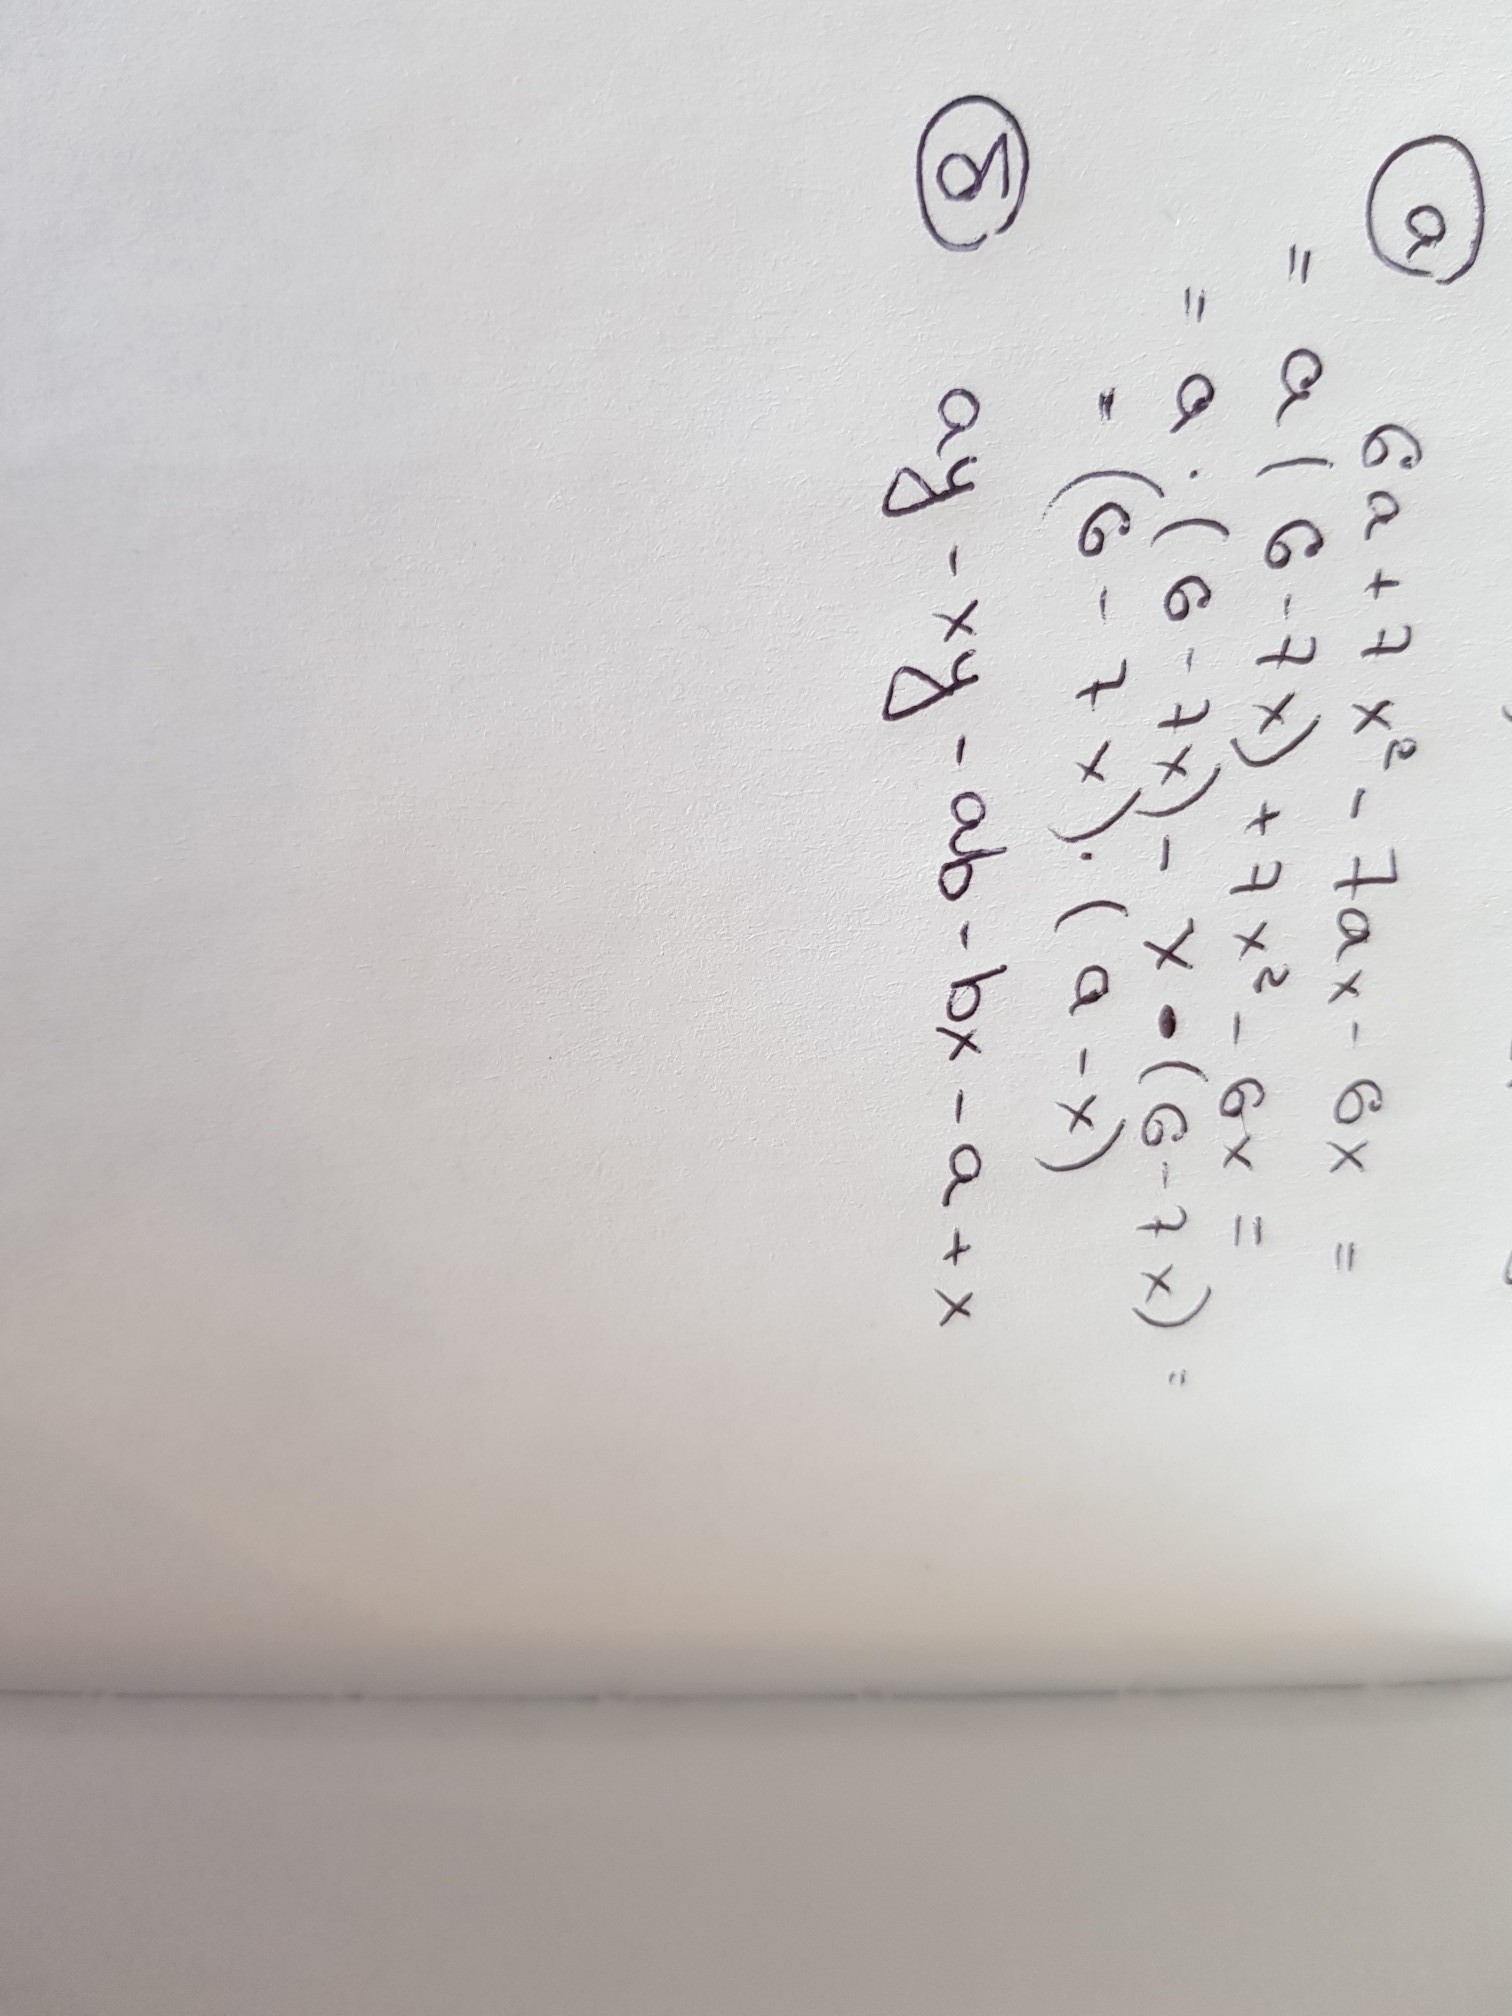 а 6a + 7x² - 7ax - 6x =
= a(6 - 7x) + 7x² - 6x =
= a · (6 - 7x) - x · (6 - 7x) =
= (6 - 7x) · (a - x)
б ay - xy - ab - bx - a + x